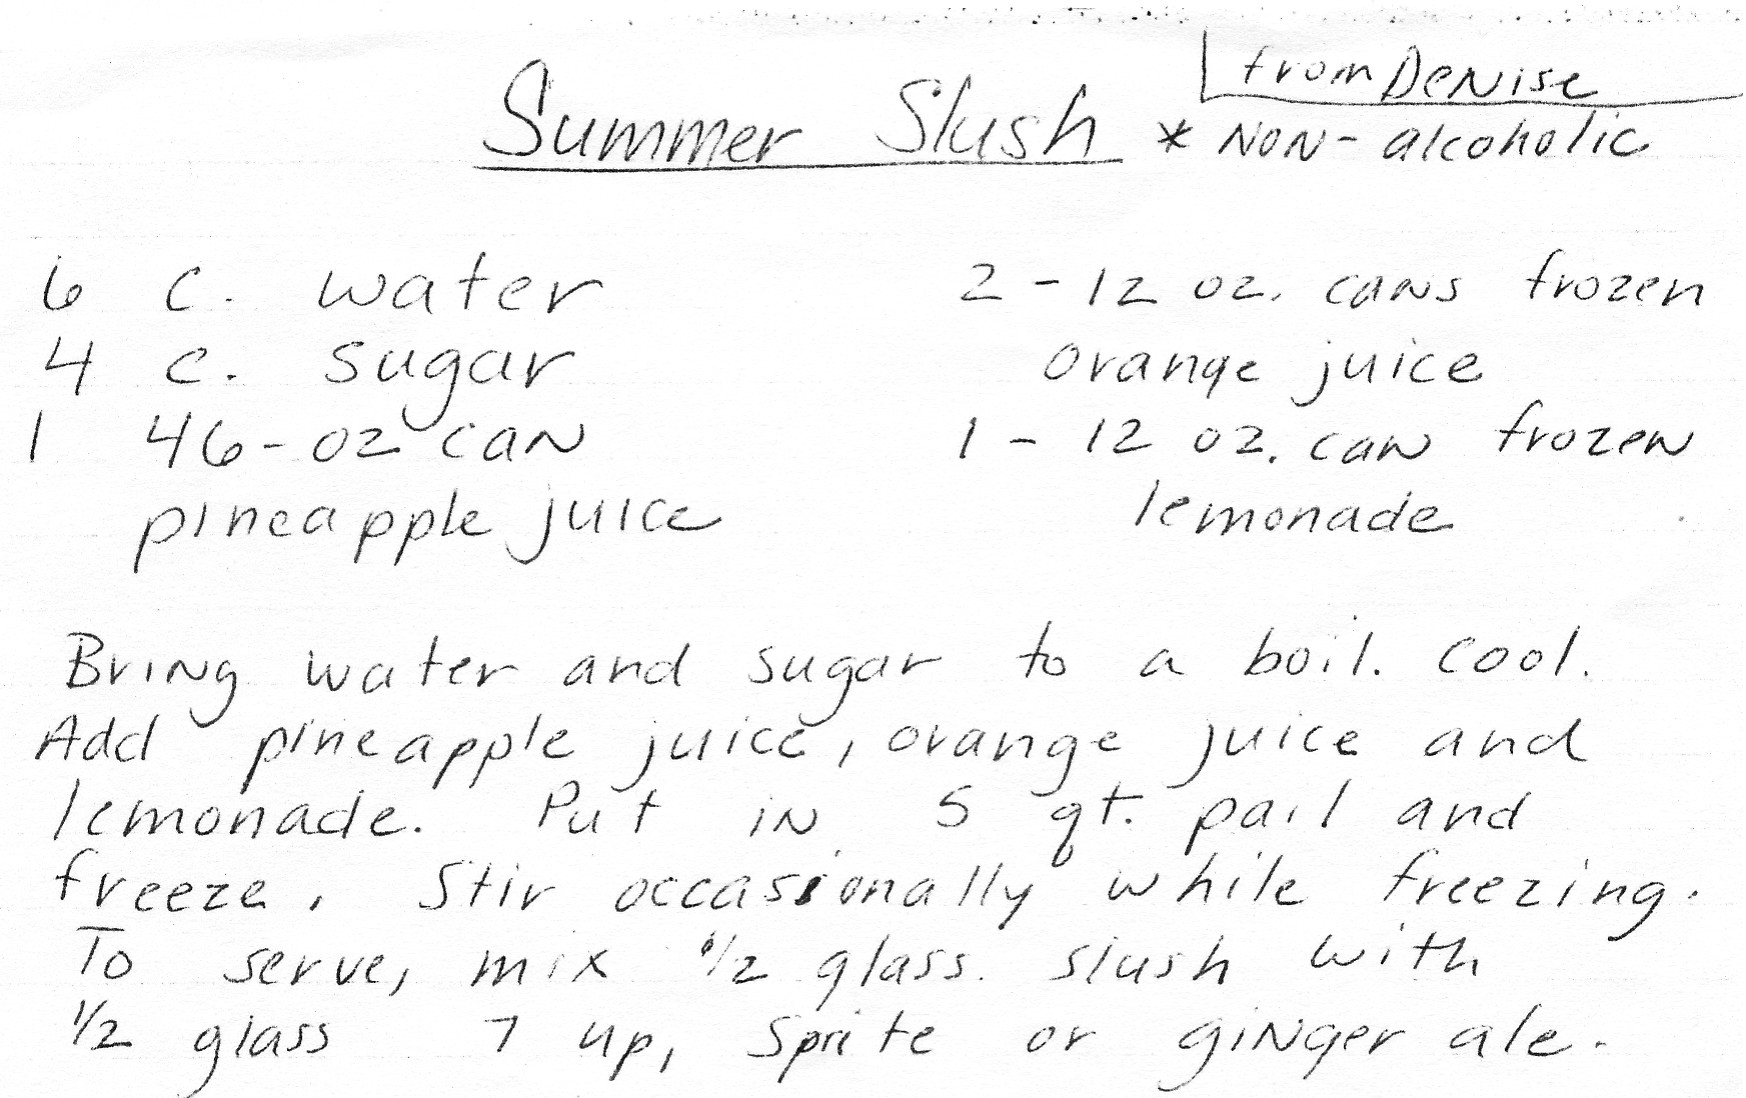 from Denise
Summer Slush * Non-alcoholic
6 c. water
4 c. sugar
1 46-oz can
pineapple juice
2 - 12 oz. cans frozen
orange juice
1 - 12 oz. can frozen
lemonade
Bring water and sugar to a boil. Cool.
Add pineapple juice, orange juice and
lemonade. Put in 5 qt. pail and
freeze. Stir occassionally while freezing.
To serve, mix 1/2 glass slush with
1/2 glass 7 up, Sprite or ginger ale.